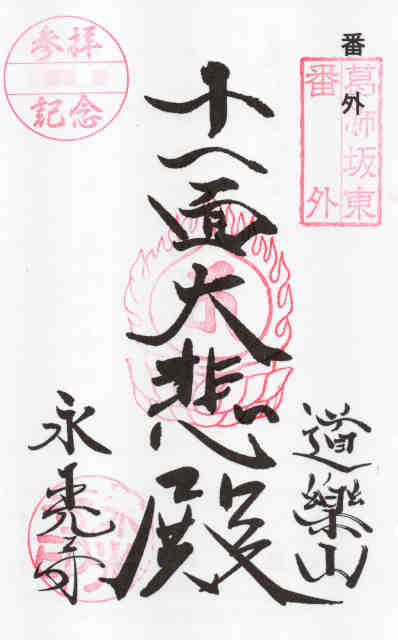 番外
葛飾坂東
番外
道樂山
十一面大悲殿
永
寺
参拝
記念